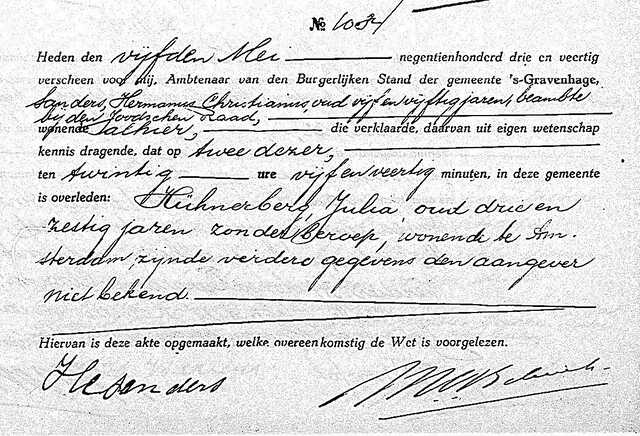 № 1034
Heden den vijfden Mei negentienhonderd drie en veertig
verscheen voor mij, Ambtenaar van den Burgerlijken Stand der gemeente 's-Gravenhage,
Sanders, Hermanus Christianus, oud vijf en vijftig jaren, beambte
bij den Joodschen Raad,
wonende alhier, die verklaarde, daarvan uit eigen wetenschap
kennis dragende, dat op twee dezer,
ten twintig ure vijf en veertig minuten, in deze gemeente
is overleden: Hühnerberg, Julia, oud drie en
zestig jaren zonder beroep, wonende te Am-
sterdam, zijnde verdere gegevens den aangever
niet bekend.
Hiervan is deze akte opgemaakt, welke overeenkomstig de Wet is voorgelezen.
HCSanders